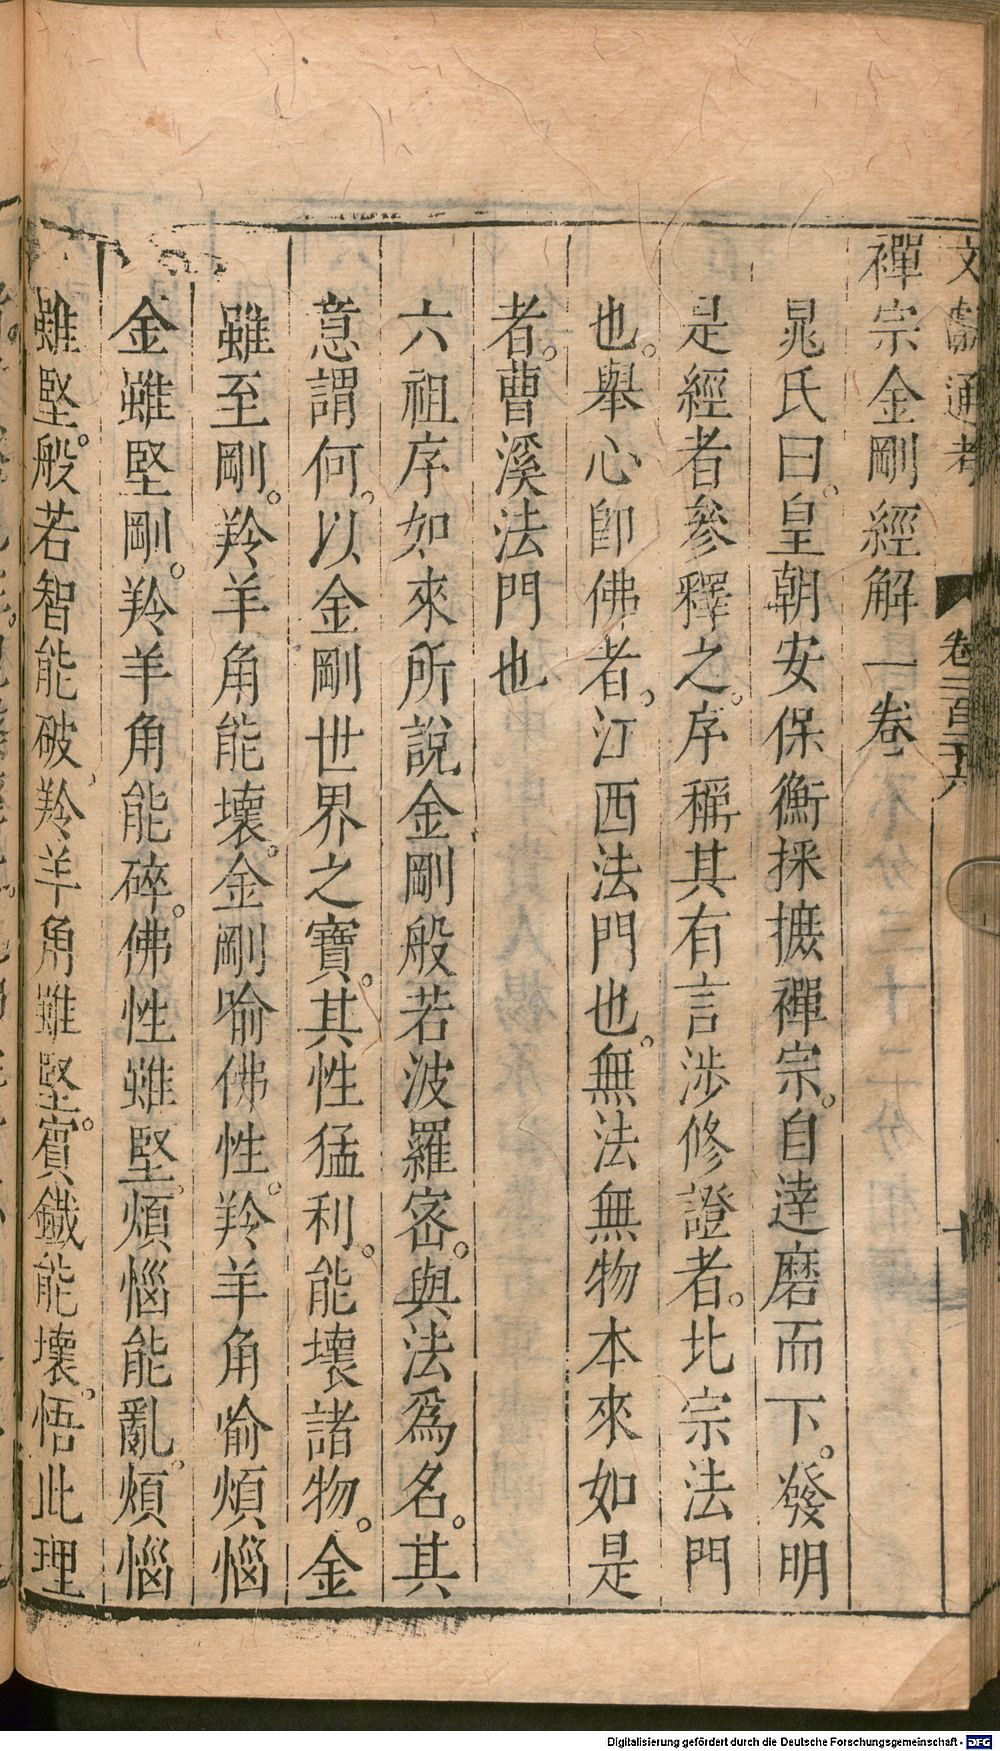 文獻通考 卷二百二十六 十
禪宗金剛經解一卷
晁氏曰。皇朝安保衡採摭禪宗。自達磨而下。發明
是經者參釋之。序稱其有言涉修證者。北宗法門
也。舉心即佛者。江西法門也。無法無物本來如是
者。曹溪法門也
六祖序如來所說金剛般若波羅密。與法爲名。其
意謂何。以金剛世界之寶。其性猛利。能壞諸物。金
雖至剛。羚羊角能壞。金剛喻佛性。羚羊角喻煩惱
金雖堅剛。羚羊角能碎。佛性雖堅。煩惱能亂。煩惱
雖堅。般若智能破、羚羊角雖堅。賓鐵能壞。悟此理
Digitalisierung gefördert durch die Deutsche Forschungsgemeinschaft - DFG